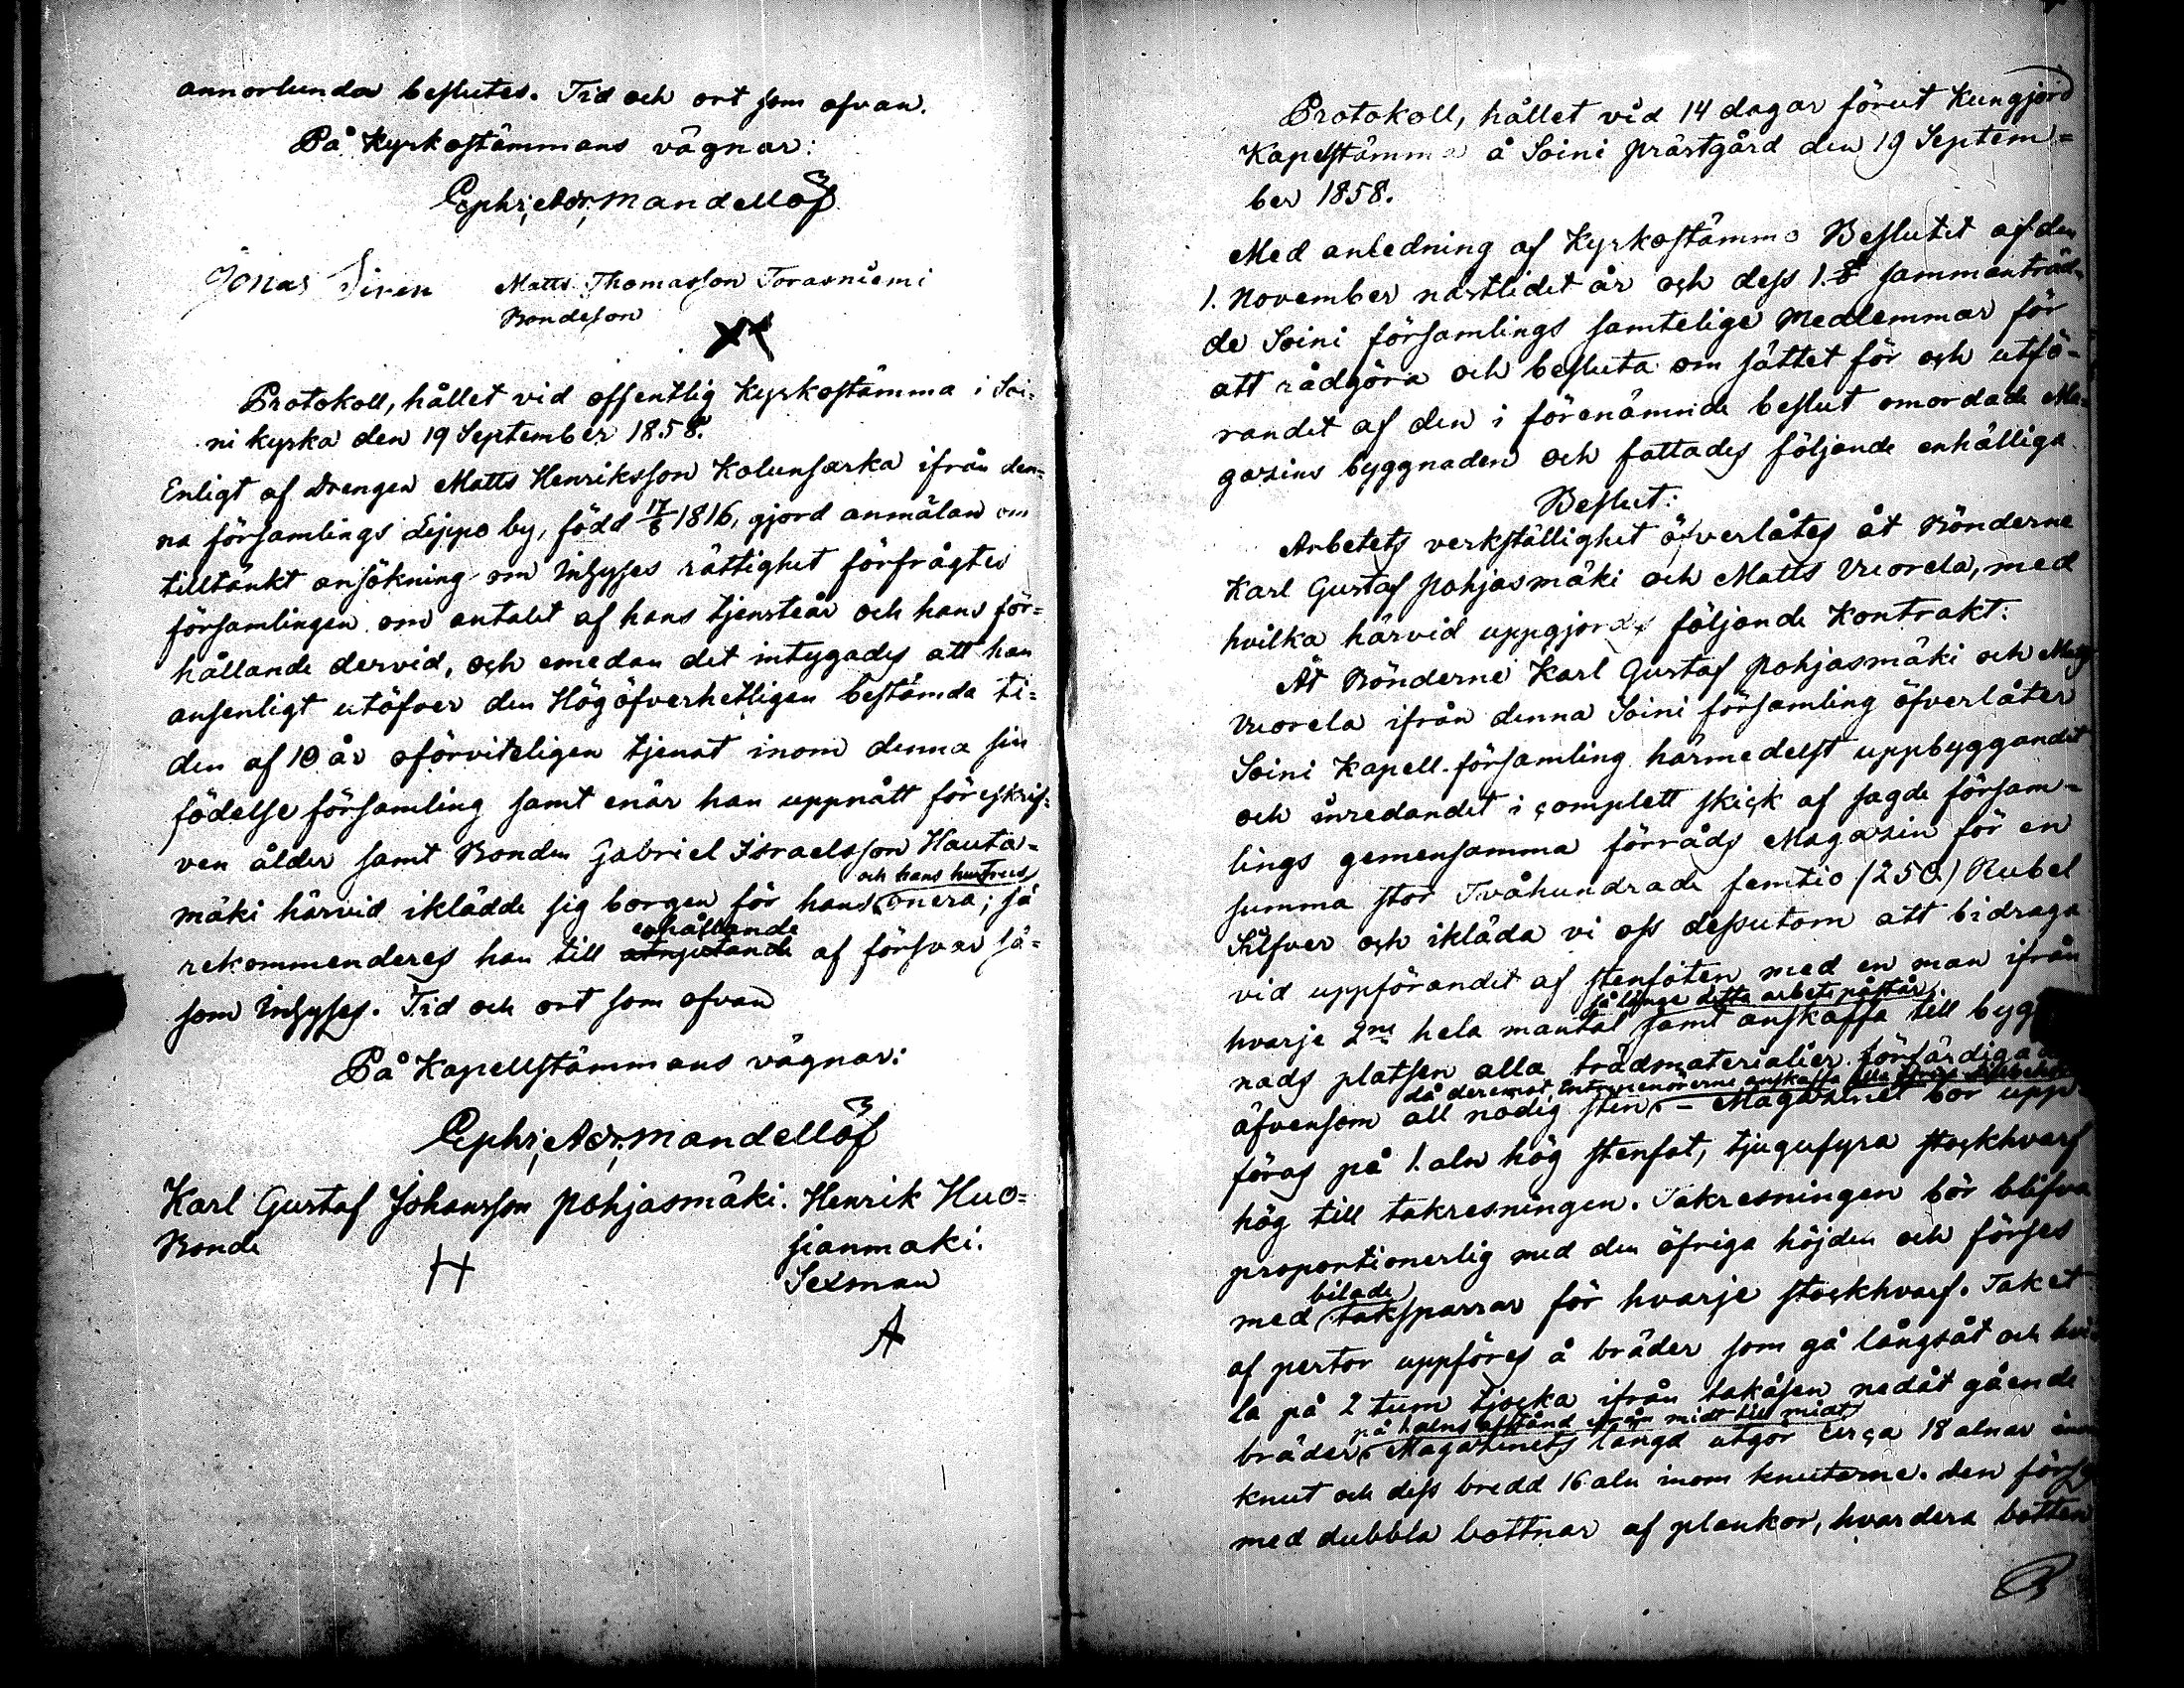 annorlunda beslutes. Tid och ort som ofvan.
På Kyrkostämmans vägnar:
Ephr; Adr; Mandellöf
Jonas Siren Matts Thomasson Torasniemi
Bondeson
Protokoll, hållet vid offentlig Kyrkostämma i Soi-
ni kyrka den 19 September 1858.
Enligt af Drengen Matts Henriksson Kolunsarka ifrån den-
na församlings Leppo by, född 17/6 1816, gjord anmälan om
tilltänkt ansökning om Inhyses rättighet förfrågtes
församlingen om antalet af hans tjensteår och hans för-
hållande dervid, och emedan det intygades att han
ansenligt utöfver den Högöfverhetligen bestämda ti-
den af 10 år oförviteligen tjenat inom denna sin
födelse församling samt enär han uppnått föreskrif-
ven ålder samt Bonden Gabriel Israelsson Hauta-
och hans hustrus
mäki härvid iklädde sig borgen för hans onera; så
erhållande
rekommenderes han till atnjutande af försvar så-
som Inhyses. Tid och ort som ofvan
På Kapellstämmans vägnar:
Ephr; Adr; Mandellöf
Karl Gustaf Johansson Pohjasmäki. Henrik Huo-
Bonde sianmaki.
H Sexman
A
Protokoll, hållet vid 14 dagar förut Kungjord
Kapellstämma å Soini prästgård den 19 Septem-
ber 1858.
Med anledning af Kyrkostämmo Beslutet af den
1. November nästlidet år och dess 1. § sammanträd-
de Soini församlings samtelige Medlemmar för
att rådgöra och besluta om sättet för och utfö-
randet af den i förenämnde beslut omordade Ma-
gazins byggnaden och fattades följande enhälliga
Beslut:
Arbetets verkställighet öfverlåtes åt Bönderne
Karl Gustaf Pohjasmäki och Matts Vuorela, med
hvilka härvid uppgjordes följande Kontrakt:
Åt Bönderne Karl Gustaf Pohjasmäki och Matts
Vuorela ifrån denna Soini församling öfverlåter
Soini Kapell-församling härmedelst uppbyggandet
och inredandet i complett skick af sagde försam-
lings gemensamma förråds Magazin för en
summa stor Tvåhundrade femtio (250) Rubel
Silfver och ikläda vi oss dessutom att bidraga
vid uppförandet af stenfoten med en man ifrån
så länge detta arbete påstår.
hvarje 2ne hela mantal samt anskaffa till byg
nads platsen alla trädmaterialier förfärdiga
då deremot Entreprenörerne anskaffa
äfvensom all nödig sten. – Magazinet bör upp-
föras på 1. aln hög stenfot, tjugufyra stockhvarf
hög till takresningen. Takresningen bör blifva
proportionerlig med den öfriga höjden och förses
bilade
med taksparrar för hvarje stockhvarf. Taket
af pertor uppföres å bräder som gå långsåt och hvi-
la på 2 tum tjocka ifrån takåsen nedåt gående
på 1 alns afstånd ifrån midt till midt
bräder. Magazinets längd utgör circa 18 alnar inom
knut och dess bredd 16 aln inom knutarne. den förses
med dubbla bottnar af plankor, hvardera botten